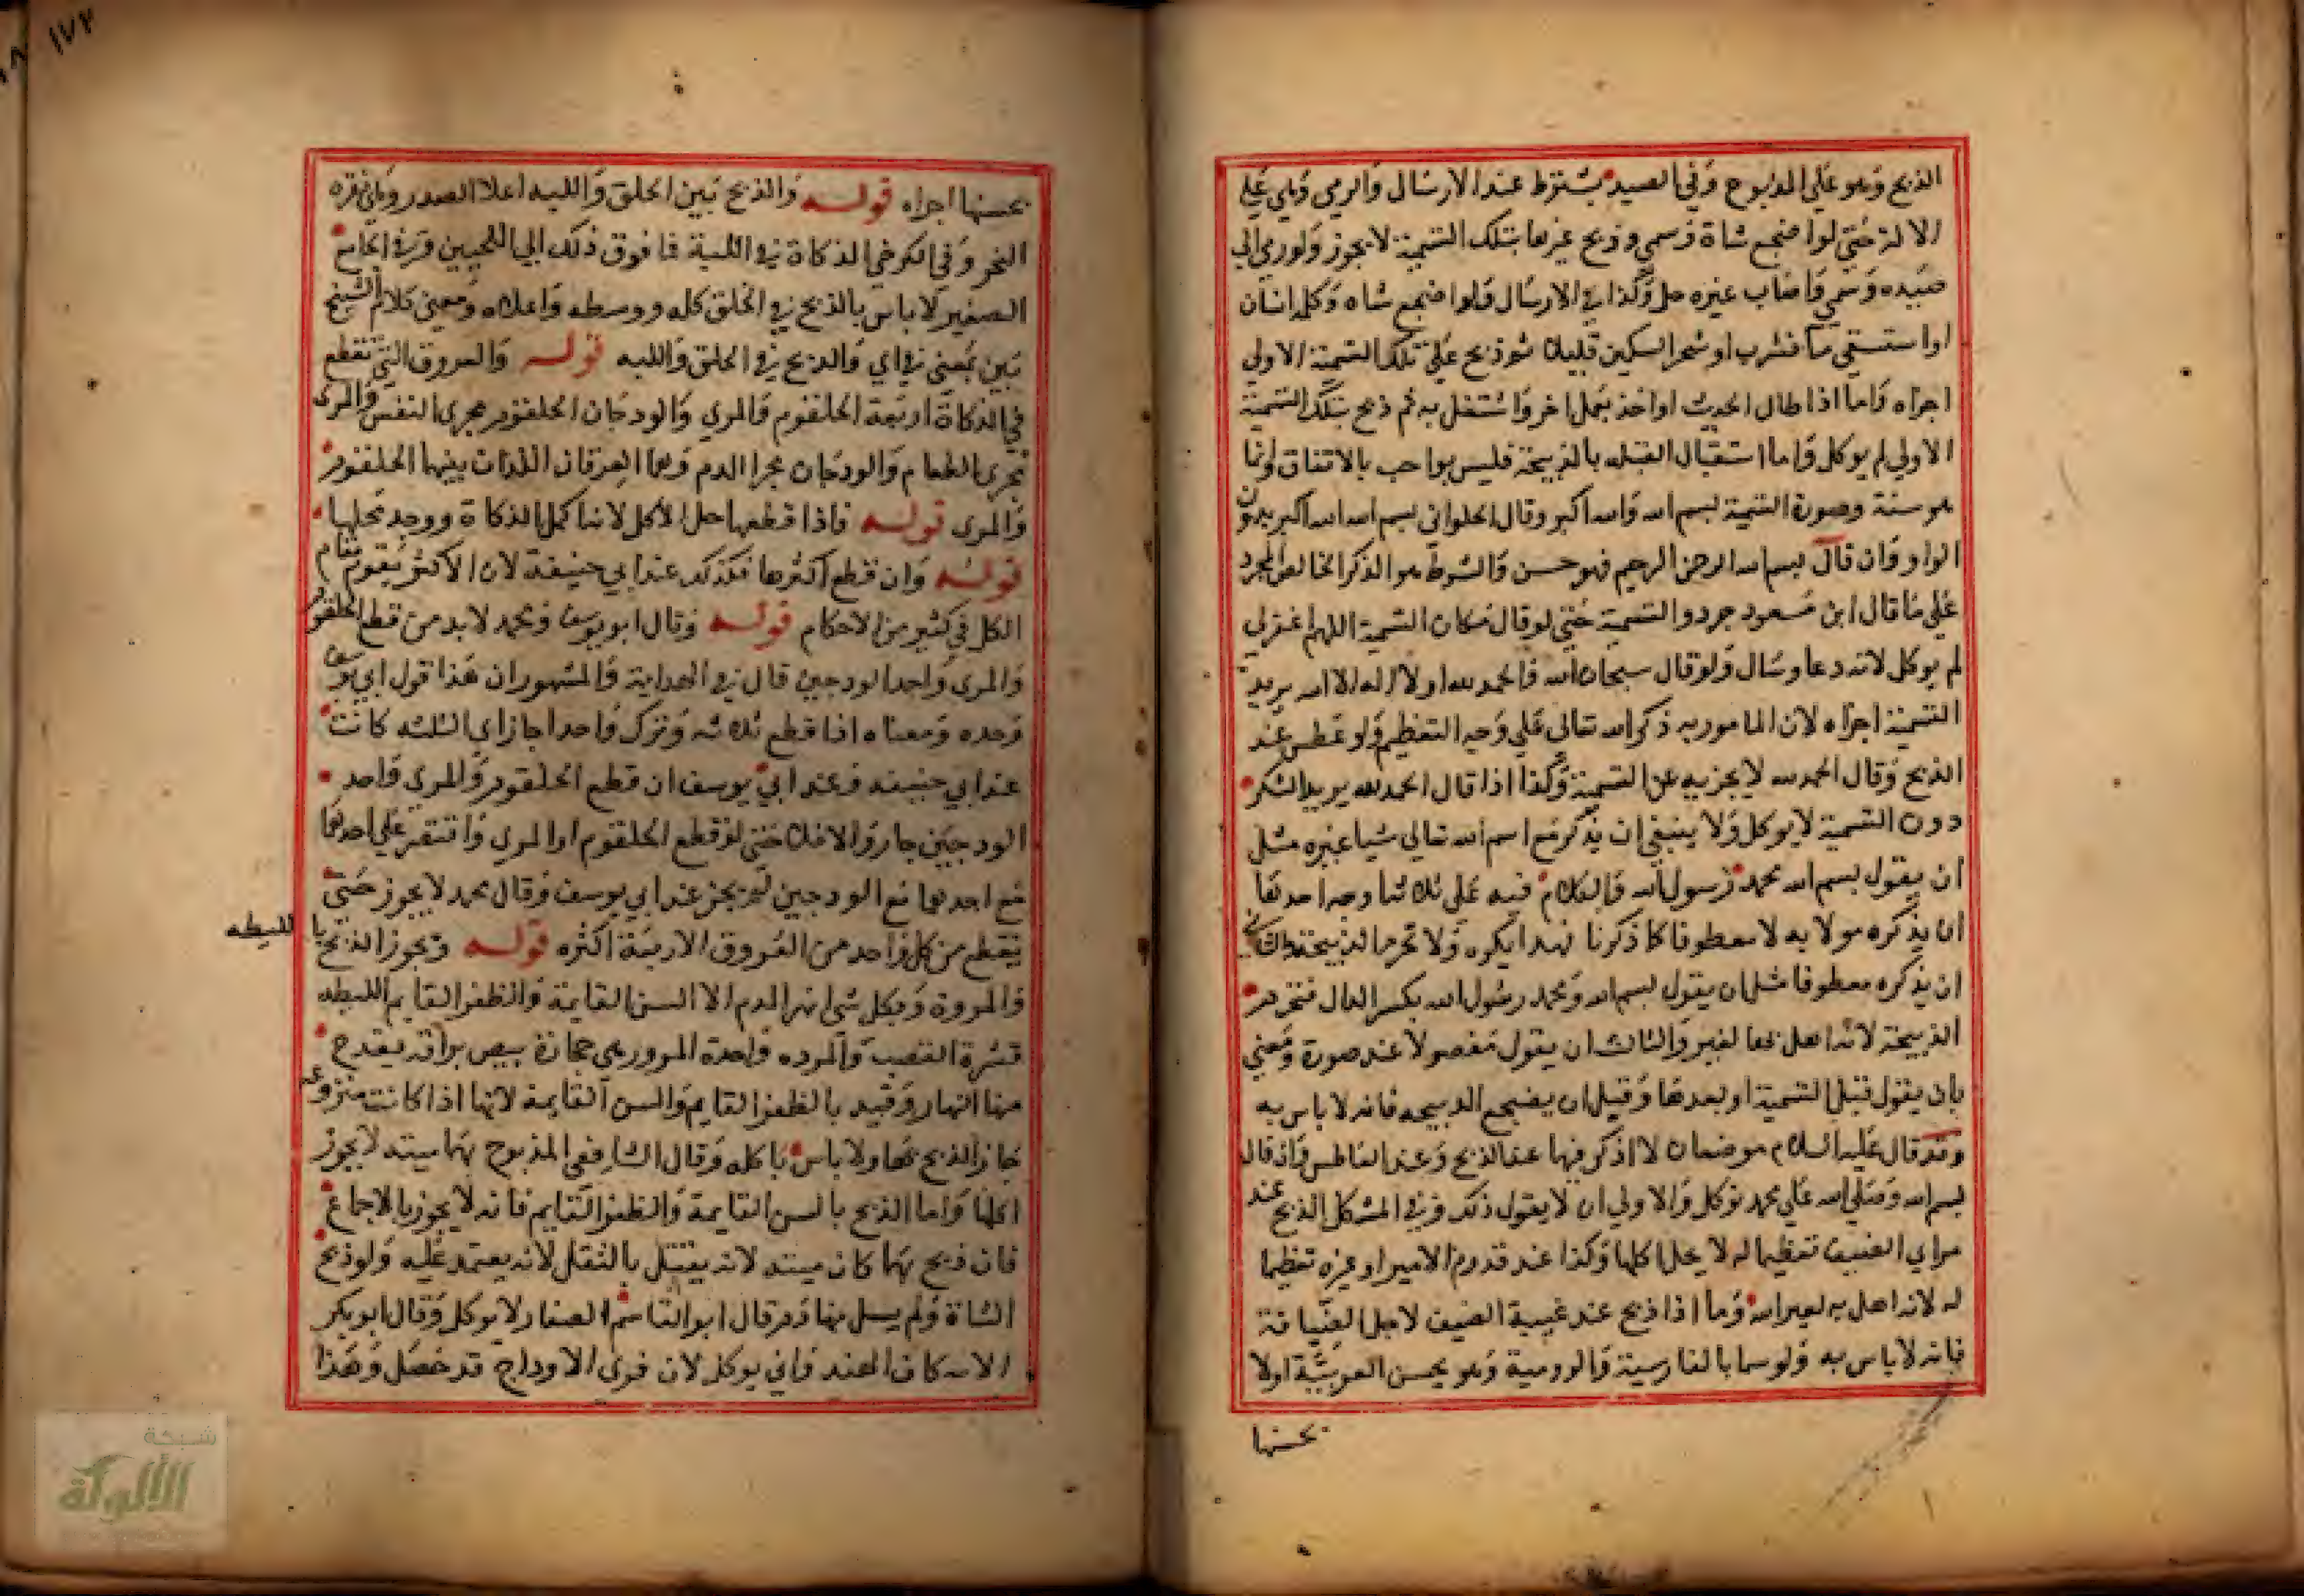 الذبح وهو علي المذبوح وفي الصيد يشترط عند الارسال والرمي وهي علي
الالة حتي لوا ضجع شاة وسمي وذبح غيرها بتلك التسمية لا يجوز ولو رمي الي
صيده وسمي واصاب غيره حل وكذا في الارسال ولوا ضجع شاه وكلم انسان
او استسقي ما فشرب او شحر السكين قليلا ثم ذبح علي تلك التسمية الاولي
اجزاه واما اذا طال الحديث او اخذ بعمل اخر واشتغل به ثم ذبح بتلك التسمية
الاولي لم يوكل واما استقبال القبله بالذبيحة فليس بواجب بالاتفاق وانما
هو سنة وصورة التسمية بسم الله والله اكبر وقال الحلواني بسم الله الله اكبر بدون
الواو وان قال بسم الله الرحمن الرحيم فهو حسن والشرط هو الذكر الخالص المجرد
علي ما قال ابن مسعود جردوا التسمية حتي لو قال مكان التسمية اللهم اغفر لي
لم يوكل لانه دعا وسال ولو قال سبحان الله والحمد لله او لا اله الا الله يريد
التسمية اجزاه لان المامور به ذكر الله تعالي علي وجه التعظيم ولو عطس عند
الذبح وقال الحمد لله لا يجزيه عن التسمية وكذا اذا قال الحمد لله يريد الشكر
دون التسمية لا يوكل ولا ينبغي ان يذكر مع اسم الله تعالي شيا غيره مثل
ان يقول بسم الله محمد رسول الله والكلام فيه علي ثلاثة اوجه احدها
ان يذكره موصولا به لا معطوفا كما ذكرنا فهذا يكره ولا تحرم الذبيحة والثاني
ان يذكره معطوفا مثل ان يقول بسم الله ومحمد رسول الله بكسر الدال فتحرم
الذبيحة لانه اهل بها لغير والثالث ان يقول مفصولا عند صورة ومعني
بان يقول قبل التسمية او بعدها وقبل ان يضجع الذبيحه فانه لا باس به
وقد قال عليه السلام موضعان لا اذكر فيها عند الذبح وعند العاطس وان قال
بسم الله وصلي الله علي محمد توكل والاولي ان لا يقول ذلك وفي المشكل الذبح عند
مراي الضيف تعظيما له لا يحل اكلها وكذا عند قدوم الامير او غيره تعظيما
له لانه اهل به لغير الله وما اذا ذبح عند غيبة الضيف لاجل الضيافة
فانه لا باس به ولو سما بالفارسية والرومية وهو يحسن العربية اولا
يحسنها
١٧٧
يحسنها اجزاه قوله والذبح بين الحلق واللبه اعلا الصدر وهي نقره
النحر وفي الكرخي الذكاة في اللبة فما فوق ذلك الي اللحيين وفي الجامع
الصغير لا باس بالذبح في الحلق كله ووسطه واعلاه ومعني كلام الشيخ
بين بمعني في اي والذبح في الحلق واللبه قوله والعروق التي تقطع
في الذكاة اربعة الحلقوم والمري والودجان الحلقوم مجري النفس والمري
مجري الطعام والودجان مجرا الدم وهما العرقان اللذان بينهما الحلقوم
والمري قوله فاذا قطعها حل الاكل لانها كمل الذكاة ووجد محلها
قوله وان قطع اكثرها فكذلك عند ابي حنيفة لان الاكثر يقوم مقام
الكل في كثير من الاحكام قوله وقال ابو يوسف ومحمد لا بد من قطع الحلقوم
والمري واحد الودجين قال في الهداية والمشهور ان هذا قول ابي يوسف
وحده ومعناه اذا قطع ثلاثه وترك واحدا جاز اي الثلثه كانت
عند ابي حنيفه وعند ابي يوسف ان قطع الحلقوم والمري واحد
الودجين جاز والا فلا حتي لو قطع الحلقوم او المري واقتصر علي احدهما
مع احدهما مع الودجين لم يجز عند ابي يوسف وقال محمد لا يجوز حتي
يقطع من كل واحد من العروق الاربعة اكثره قوله ويجوز الذبح با للليطه
والمروة وبكل شي انهر الدم الا السن القايمة والظفر القايم الليطه
قشرة القصب والمروه واحدة المرو وهي حجارة بيض براقه يقدح
منها النار وقيد بالظفر القايم والسن القايمة لانها اذا كانت منزوعه
جاز الذبح بها ولا باس باكله وقال الشافعي المذبوح بها ميته لا يجوز
اكلها واما الذبح بالسن القايمة والظفر القايم فانه لا يجوز بالاجماع
فان ذبح بهما كان ميته لانه يقتل بالثقل لانه يعتمد عليه ولو ذبح
الشاة ولم يسل منها دم قال ابو القاسم الصفار لا يوكل وقال ابو بكر
الاسكاف الهند واني يوكل لان فري الاوداج قد حصل وهذا
شبكة
الألوكة